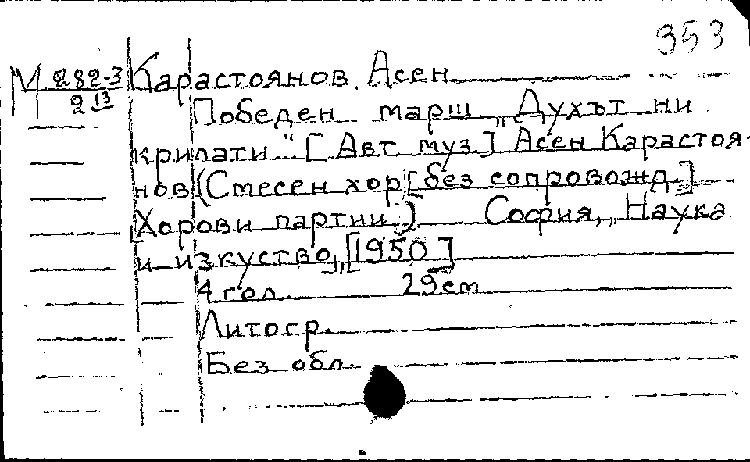 353
М 282-3 Карастоянов, Асен
2 13 Победен марш „Духът ни
крилати" [Авт муз] Асен Карастоя-
нов (Смесен хор [без сопровожд.]
[Хорови партии] София, „Наука
и изкуство", [1950]
4 гол. 29 см
Литогр.
Без обл.